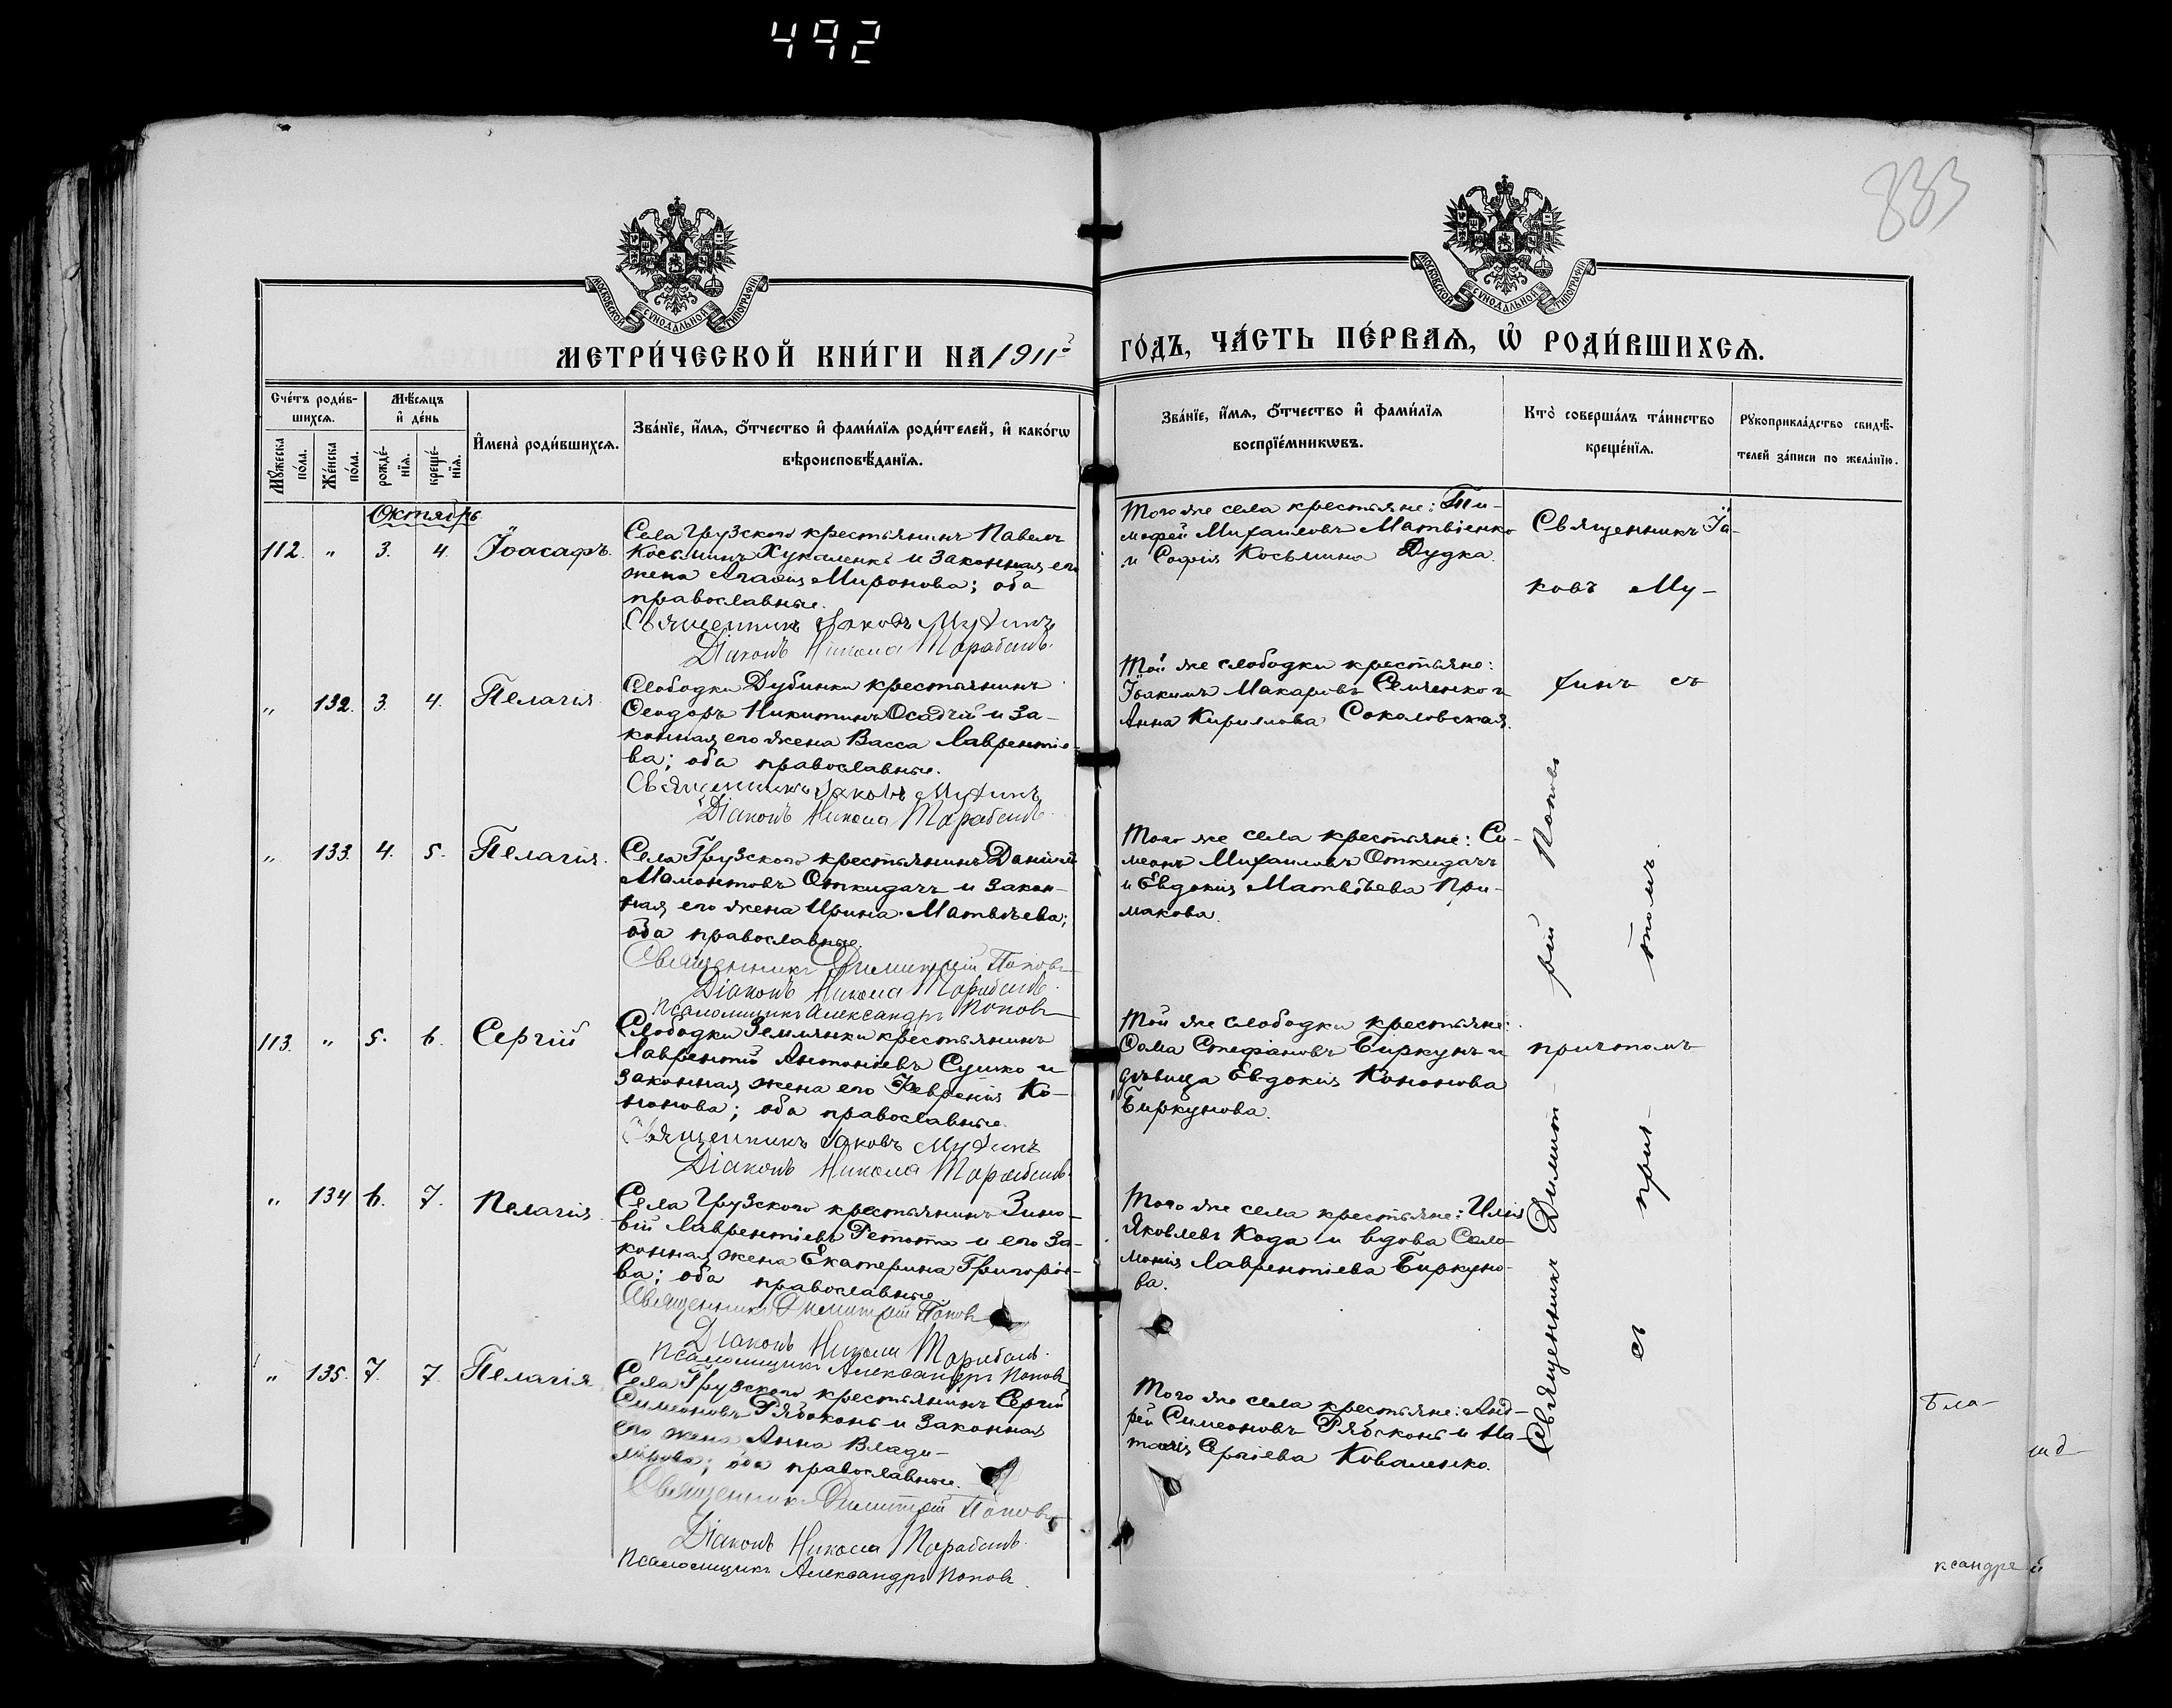 492
833
МОСКОВСКОЙ СѴНОДАЛЬНОЙ ТИПОГРАФІИ
МОСКОВСКОЙ СѴНОДАЛЬНОЙ ТИПОГРАФІИ
МЕТРИ́ЧЕСКОЙ КНИ́ГИ НА 1911й
ГО́ДЪ, ЧА́СТЬ ПЕ́РВАѦ, Ѽ РОДИ́ВШИХСѦ.
Сче́тъ роди́в-
шихсѧ.
Мꙋ́жеска по́ла.
Же́нска по́ла.
Мѣ́сѧцъ
и҆ де́нь
рожде́-
нїѧ.
креще́-
нїѧ.
И҆мена̀ роди́вшихсѧ.
Зва́нїе, и҆́мѧ, ѻ҆́тчество и҆ фами́лїѧ роди́телей, и҆ како́гѡ
вѣроисповѣ́данїѧ.
Зва́нїе, и҆́мѧ, ѻ҆́тчество и҆ фами́лїѧ
воспрїе́мникѡвъ.
Кто̀ соверша́лъ та́инство
креще́нїѧ.
Рꙋкоприкла́дство свидѣ́-
телей за́писи по жела́нїю.
Октябрь
112. „ 3. 4. Іоасафъ.
Села Грузского крестьянинъ Павелъ
Косьминъ и законная его
жена Агафія Миронова; оба
православные.
Священникъ Іаковъ Мухинъ
Діаконъ Никола
Того же села крестьяне: Ти-
мофей Михаиловъ Матвіенко
и Софія Косьмина Дудка.
Священникъ Іа-
ковъ Му-
хинъ съ
причтомъ
„ 132. 3. 4. Пелагія
Слободки Дубинки крестьянинъ
Ѳеодоръ Никитинъ Осадчій и за-
конная его жена Васса Лаврентіе-
ва; оба православные.
Священникъ Іаковъ Мухинъ
Діаконъ Никола
Той же слободки крестьяне:
Іоакимъ Макаровъ Семченко и
Анна Кирилова Соколовская.
„ 133. 4. 5. Пелагія.
Села Грузского крестьянинъ Даніилъ
Мамонтовъ Откидачъ и закон-
ная его жена Ирина Матвѣева;
оба православные.
Священникъ Димитрій Поповъ
Діаконъ Никола
Псаломщикъ Александръ Поповъ
Того же села крестьяне: Си-
меонъ Михаиловъ Откидачъ
и Евдокія Матвѣева При-
макова.
113. „ 5. 6. Сергій
Слободки Землянки крестьянинъ
Лаврентій Антоніевъ Сушко и
законная жена его Февронія Ко-
нонова; оба православные.
Священникъ Іаковъ Мухинъ
Діаконъ Никола
Той же слободки крестьяне:
Ѳома Стефановъ Биркунъ и
дѣвица Евдокія Кононова
Биркунова.
„ 134 6. 7. Пелагія
Села Грузского крестьянинъ Зино-
вій Лаврентіевъ и его за-
конная жена Екатерина Григоріе-
ва; оба православные.
Священникъ Димитрій Поповъ
Діаконъ Никола
Псаломщикъ Александръ Поповъ
Того же села крестьяне: Илія
Яковлевъ Кода и вдова Соло-
монія Лаврентіева Биркуно-
ва.
„ 135. 7. 7. Пелагія
Села Грузского крестьянинъ Сергій
Симеоновъ Рябоконь и законная
его жена Анна Влади-
мірова; оба православные.
Священникъ Димитрій Поповъ
Діаконъ Никола
Псаломщикъ Александръ Поповъ
Того же села крестьяне: Анд-
рей Симеоновъ Рябоконь и На-
талія Сергіева Коваленко.
Священникъ Димит-
рій Поповъ
съ прич-
томъ.
Бла-
ксандре